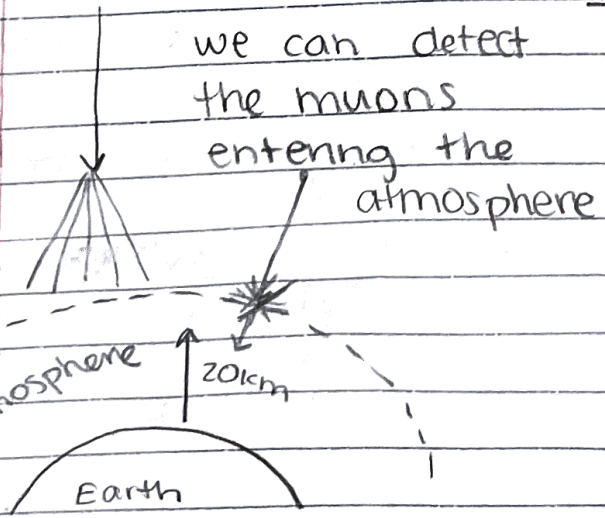 we can detect
the muons
entering the
atmosphere
nosphere
20km
Earth